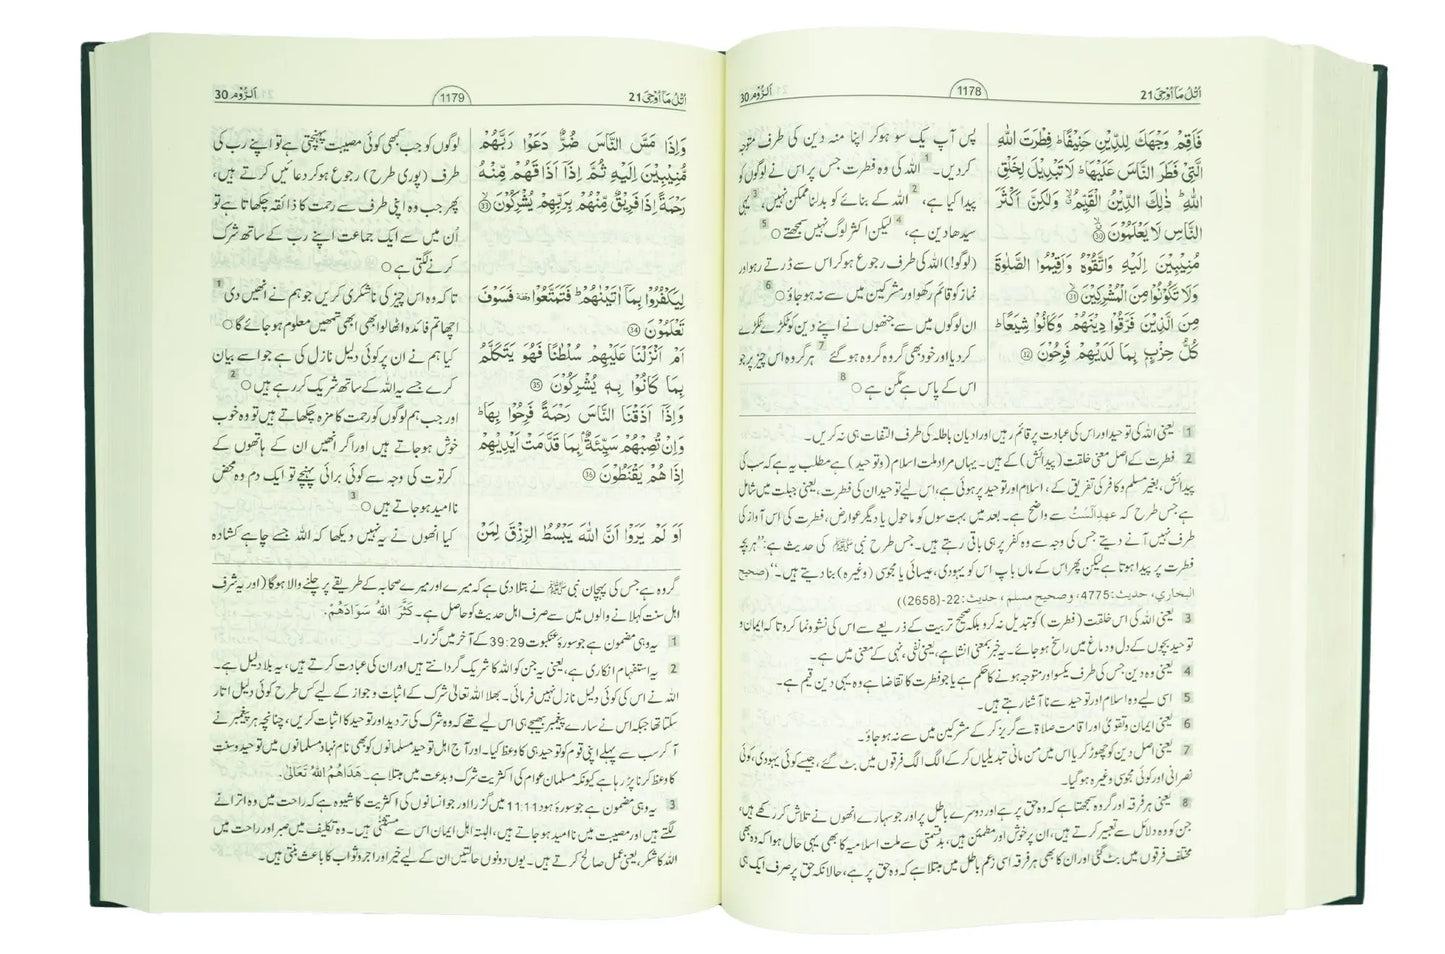 اُتْلُ مَآ اُوْحِیَ 21
1178
اَلرُّوْم 30
فَاَقِمْ وَجْهَكَ لِلدِّیْنِ حَنِیْفًا ؕ فِطْرَتَ اللّٰهِ
الَّتِیْ فَطَرَ النَّاسَ عَلَیْهَا ؕ لَا تَبْدِیْلَ لِخَلْقِ
اللّٰهِ ؕ ذٰلِكَ الدِّیْنُ الْقَیِّمُ ۙ وَلٰكِنَّ اَكْثَرَ
النَّاسِ لَا یَعْلَمُوْنَ ۙ ㉚
مُنِیْبِیْنَ اِلَیْهِ وَاتَّقُوْهُ وَاَقِیْمُوا الصَّلٰوةَ
وَلَا تَكُوْنُوْا مِنَ الْمُشْرِكِیْنَ ۙ ㉛
مِنَ الَّذِیْنَ فَرَّقُوْا دِیْنَهُمْ وَكَانُوْا شِیَعًا ؕ
كُلُّ حِزْبٍۭ بِمَا لَدَیْهِمْ فَرِحُوْنَ ㉜
پس آپ یک سو ہوکر اپنا منہ دین کی طرف متوجہ
کر دیں۔ 1 اللہ کی وہ فطرت جس پر اس نے لوگوں کو
پیدا کیا ہے، 2 اللہ کے بنائے کو بدلنا ممکن نہیں، 3 یہی
سیدھا دین ہے، 4 لیکن اکثر لوگ نہیں سمجھتے ○ 5
(لوگو!) اللہ کی طرف رجوع ہوکر اس سے ڈرتے رہو اور
نماز کو قائم رکھو اور مشرکین میں سے نہ ہو جاؤ ○ 6
ان لوگوں میں سے جنھوں نے اپنے دین کو ٹکڑے ٹکڑے
کر دیا اور خود بھی گروہ گروہ ہو گئے 7 ہر گروہ اس چیز پر جو
اس کے پاس ہے مگن ہے ○ 8
1 یعنی اللہ کی توحید اور اس کی عبادت پر قائم رہیں اور ادیان باطلہ کی طرف التفات ہی نہ کریں۔
2 فطرت کے اصل معنی خلقت (پیدائش) کے ہیں۔ یہاں مراد ملت اسلام (و توحید) ہے مطلب یہ ہے کہ سب کی
پیدائش، بغیر مسلم و کافر کی تفریق کے، اسلام اور توحید پر ہوئی ہے، اس لیے توحید ان کی فطرت، یعنی جبلت میں شامل
ہے جس طرح کہ عہدِ اَلَسْتُ سے واضح ہے۔ بعد میں بہت سوں کو ماحول یا دیگر عوارض، فطرت کی اس آواز کی
طرف نہیں آنے دیتے جس کی وجہ سے وہ کفر پر ہی باقی رہتے ہیں۔ جس طرح نبی ﷺ کی حدیث ہے: ”ہر بچہ
فطرت پر پیدا ہوتا ہے لیکن پھر اس کے ماں باپ اس کو یہودی، عیسائی یا مجوسی (وغیرہ) بنا دیتے ہیں۔“ (صحیح
البخاري، حدیث:4775، و صحیح مسلم، حدیث:22-(2658))
3 یعنی اللہ کی اس خلقت (فطرت) کو تبدیل نہ کرو بلکہ صحیح تربیت کے ذریعے سے اس کی نشوونما کرو تا کہ ایمان و
توحید بچوں کے دل و دماغ میں راسخ ہو جائے۔ یہ خبر بمعنی انشا ہے، یعنی نفی، نہی کے معنی میں ہے۔
4 یعنی وہ دین جس کی طرف یکسو اور متوجہ ہونے کا حکم ہے یا جو فطرت کا تقاضا ہے وہ یہی دین قیم ہے۔
5 اسی لیے وہ اسلام اور توحید سے نا آشنا رہتے ہیں۔
6 یعنی ایمان و تقویٰ اور اقامت صلاۃ سے گریز کر کے مشرکین میں سے نہ ہو جاؤ۔
7 یعنی اصل دین کو چھوڑ کر یا اس میں من مانی تبدیلیاں کر کے الگ الگ فرقوں میں بٹ گئے، جیسے کوئی یہودی، کوئی
نصرانی اور کوئی مجوسی وغیرہ ہو گیا۔
8 یعنی ہر فرقہ اور گروہ سمجھتا ہے کہ وہ حق پر ہے اور دوسرے باطل پر اور جو سہارے انھوں نے تلاش کر رکھے ہیں،
جن کو وہ دلائل سے تعبیر کرتے ہیں، ان پر خوش اور مطمئن ہیں، بدقسمتی سے ملت اسلامیہ کا بھی یہی حال ہوا کہ وہ بھی
مختلف فرقوں میں بٹ گئی اور ان کا بھی ہر فرقہ اسی زعم باطل میں مبتلا ہے کہ وہ حق پر ہے، حالانکہ حق پر صرف ایک ہی
اُتْلُ مَآ اُوْحِیَ 21
1179
اَلرُّوْم 30
وَاِذَا مَسَّ النَّاسَ ضُرٌّ دَعَوْا رَبَّهُمْ
مُّنِیْبِیْنَ اِلَیْهِ ثُمَّ اِذَاۤ اَذَاقَهُمْ مِّنْهُ
رَحْمَةً اِذَا فَرِیْقٌ مِّنْهُمْ بِرَبِّهِمْ یُشْرِكُوْنَ ۙ ㉝
لِیَكْفُرُوْا بِمَاۤ اٰتَیْنٰهُمْ ؕ فَتَمَتَّعُوْا ۥ فَسَوْفَ
تَعْلَمُوْنَ ㉞
اَمْ اَنْزَلْنَا عَلَیْهِمْ سُلْطٰنًا فَهُوَ یَتَكَلَّمُ
بِمَا كَانُوْا بِهٖ یُشْرِكُوْنَ ㉟
وَاِذَاۤ اَذَقْنَا النَّاسَ رَحْمَةً فَرِحُوْا بِهَا ؕ
وَاِنْ تُصِبْهُمْ سَیِّئَةٌۢ بِمَا قَدَّمَتْ اَیْدِیْهِمْ
اِذَا هُمْ یَقْنَطُوْنَ ㊱
اَوَ لَمْ یَرَوْا اَنَّ اللّٰهَ یَبْسُطُ الرِّزْقَ لِمَنْ
لوگوں کو جب کبھی کوئی مصیبت پہنچتی ہے تو اپنے رب کی
طرف (پوری طرح) رجوع ہوکر دعائیں کرتے ہیں،
پھر جب وہ اپنی طرف سے رحمت کا ذائقہ چکھاتا ہے تو
اُن میں سے ایک جماعت اپنے رب کے ساتھ شرک
کرنے لگتی ہے ○
تا کہ وہ اس چیز کی ناشکری کریں جو ہم نے انھیں دی 1
اچھا تم فائدہ اٹھا لو ابھی ابھی تمھیں معلوم ہو جائے گا ○
کیا ہم نے ان پر کوئی دلیل نازل کی ہے جو اسے بیان
کرے جسے یہ اللہ کے ساتھ شریک کر رہے ہیں ○ 2
اور جب ہم لوگوں کو رحمت کا مزہ چکھاتے ہیں تو وہ خوب
خوش ہو جاتے ہیں اور اگر انھیں ان کے ہاتھوں کے
کرتوت کی وجہ سے کوئی برائی پہنچے تو ایک دم وہ محض
ناامید ہو جاتے ہیں ○ 3
کیا انھوں نے یہ نہیں دیکھا کہ اللہ جسے چاہے کشادہ
گروہ ہے جس کی پہچان نبی ﷺ نے بتلا دی ہے کہ میرے اور میرے صحابہ کے طریقے پر چلنے والا ہوگا (اور یہ شرف
اہل سنت کہلانے والوں میں سے صرف اہل حدیث کو حاصل ہے۔ كَثَّرَ اللّٰهُ سَوَادَهُمْ۔
1 یہ وہی مضمون ہے جو سورۂ عنکبوت 39:29 کے آخر میں گزرا۔
2 یہ استفہام انکاری ہے، یعنی یہ جن کو اللہ کا شریک گردانتے ہیں اور ان کی عبادت کرتے ہیں، یہ بلا دلیل ہے۔
اللہ نے اس کی کوئی دلیل نازل نہیں فرمائی۔ بھلا اللہ تعالیٰ شرک کے اثبات و جواز کے لیے کس طرح کوئی دلیل اتار
سکتا تھا جبکہ اس نے سارے پیغمبر بھیجے ہی اس لیے تھے کہ وہ شرک کی تردید اور توحید کا اثبات کریں، چنانچہ ہر پیغمبر نے
آ کر سب سے پہلے اپنی قوم کو توحید ہی کا وعظ کیا۔ اور آج اہل توحید مسلمانوں کو بھی نام نہاد مسلمانوں میں توحید و سنت
کا وعظ کرنا پڑ رہا ہے کیونکہ مسلمان عوام کی اکثریت شرک و بدعت میں مبتلا ہے۔ هَدَاهُمُ اللّٰهُ تَعَالٰی۔
3 یہ وہی مضمون ہے جو سورۂ ہود 11:11 میں گزرا اور جو انسانوں کی اکثریت کا شیوہ ہے کہ راحت میں وہ اترانے
لگتے ہیں اور مصیبت میں ناامید ہو جاتے ہیں، البتہ اہل ایمان اس سے مستثنیٰ ہیں۔ وہ تکلیف میں صبر اور راحت میں
اللہ کا شکر، یعنی عمل صالح کرتے ہیں۔ یوں دونوں حالتیں ان کے لیے خیر اور اجر و ثواب کا باعث بنتی ہیں۔